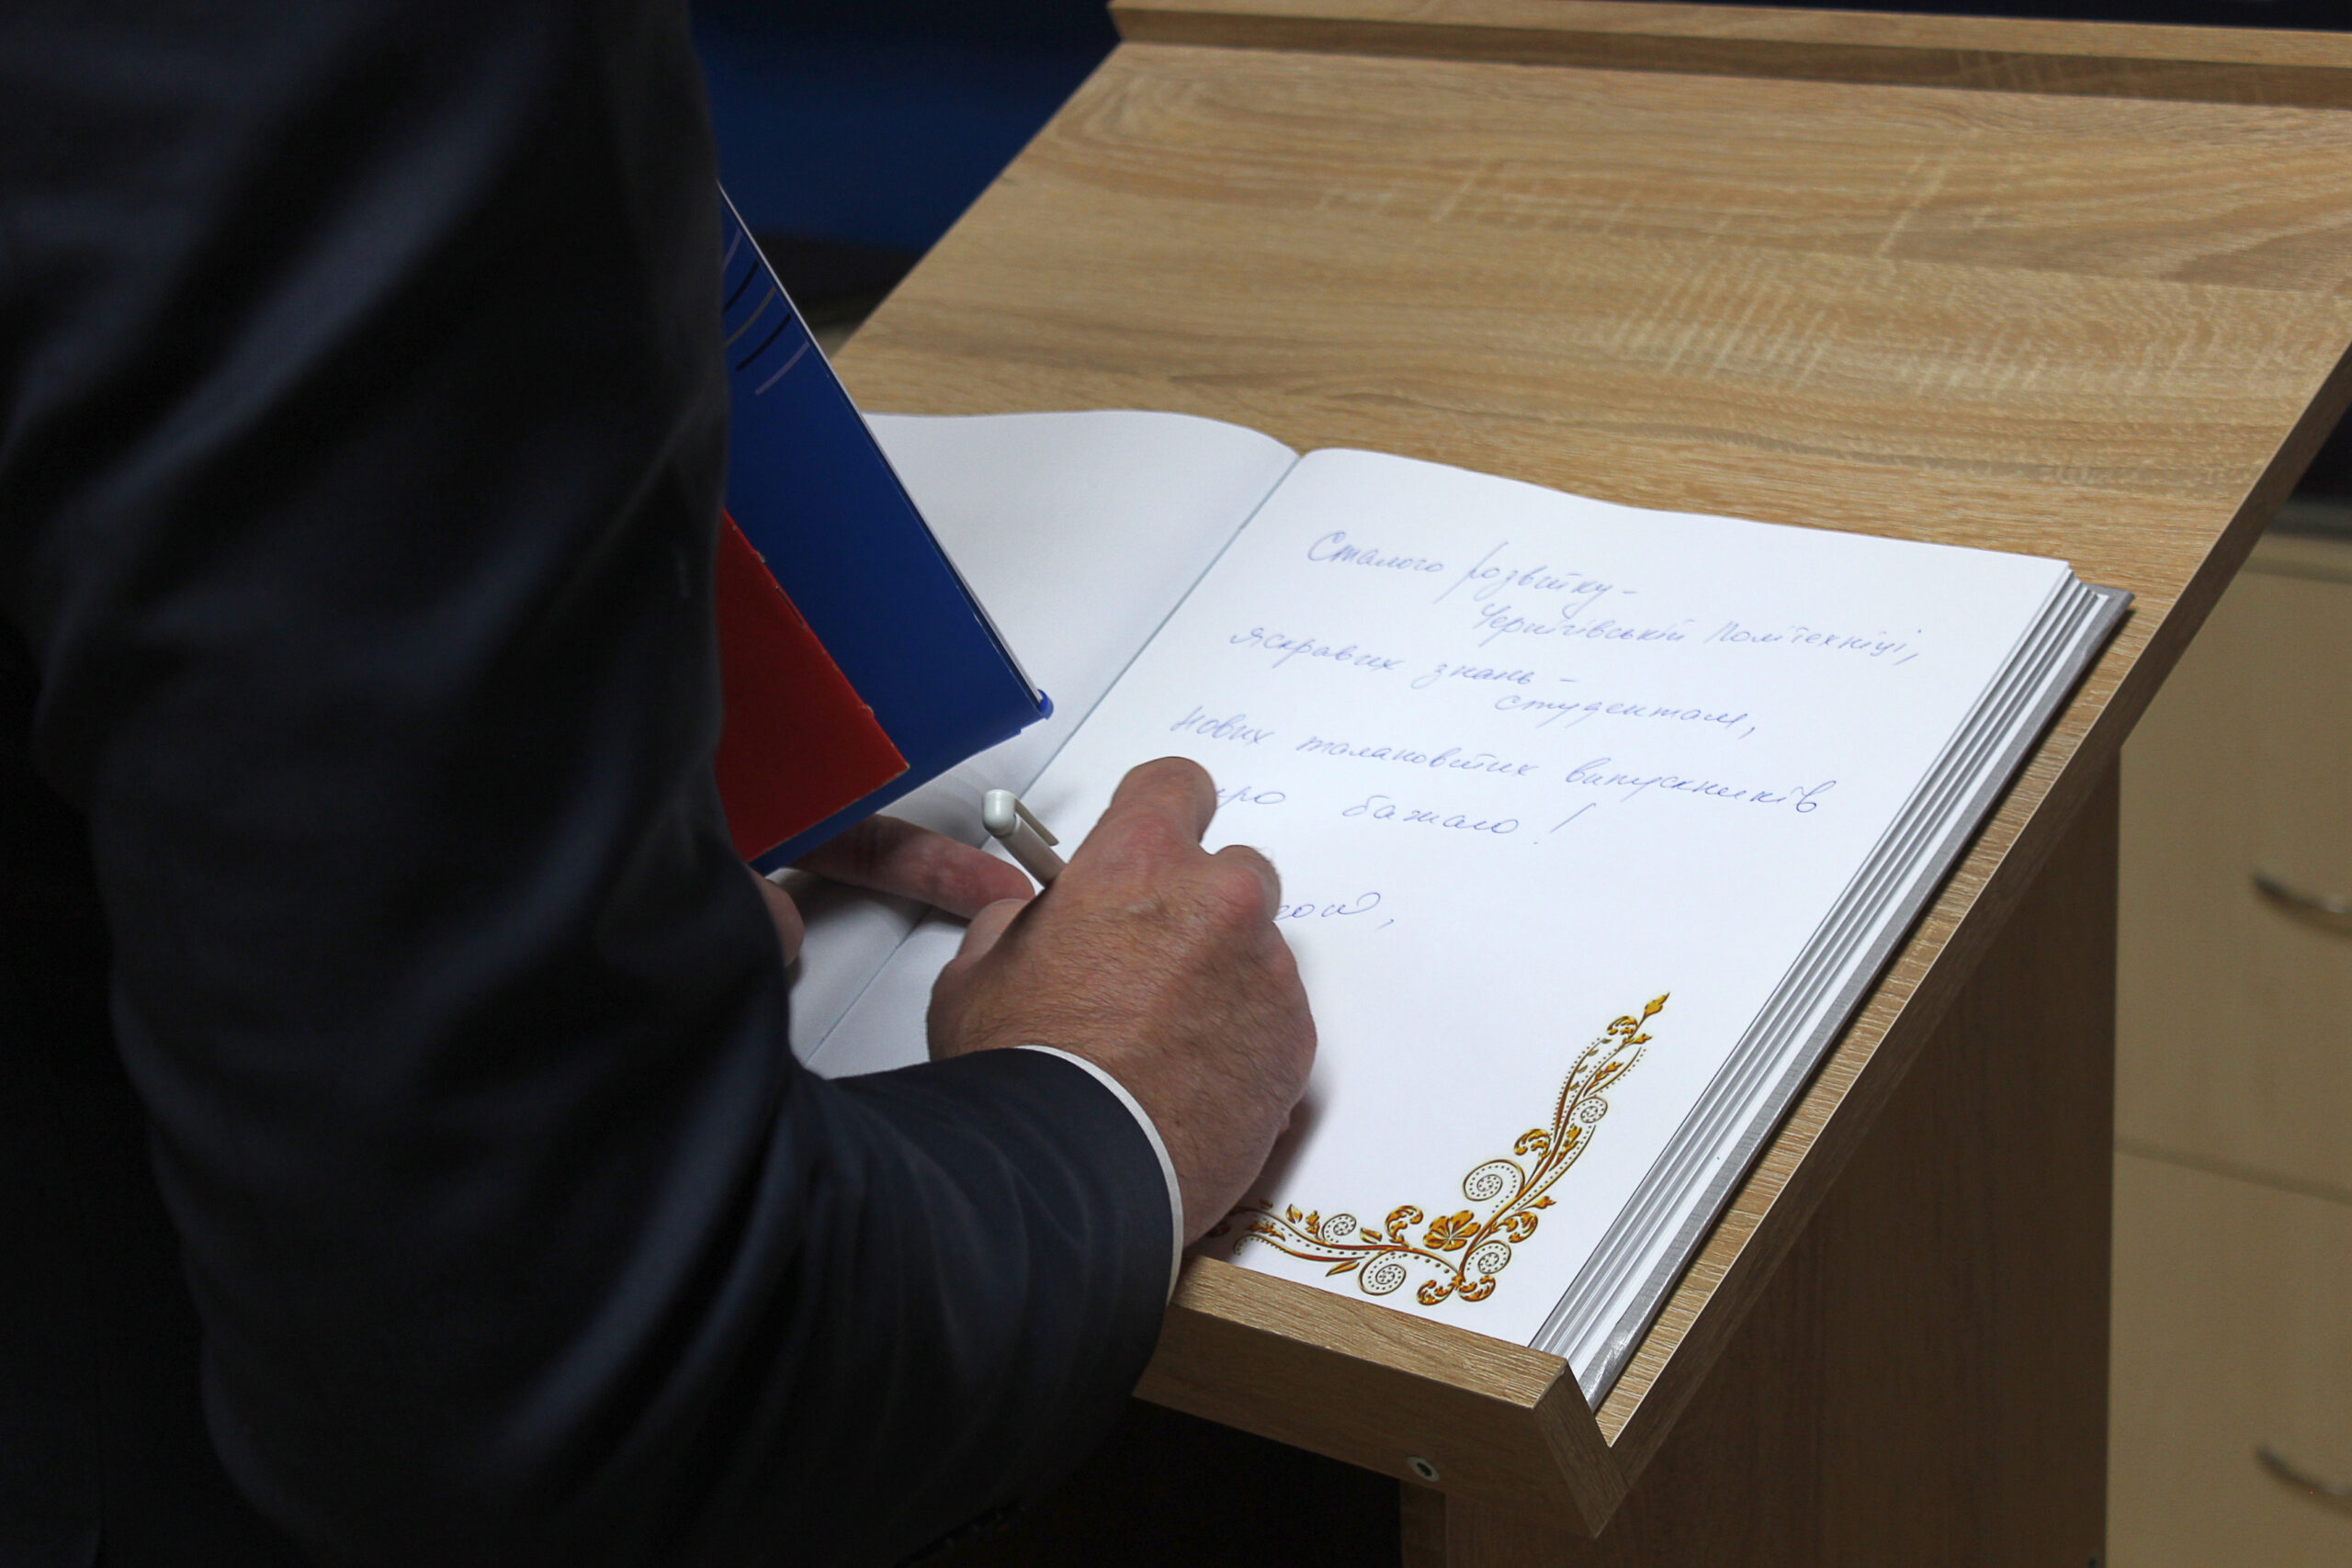 Сталого розвитку -
Чернігівській Політехніці,
яскравих знань -
студентам,
нових талановитих випускників
бажаю!